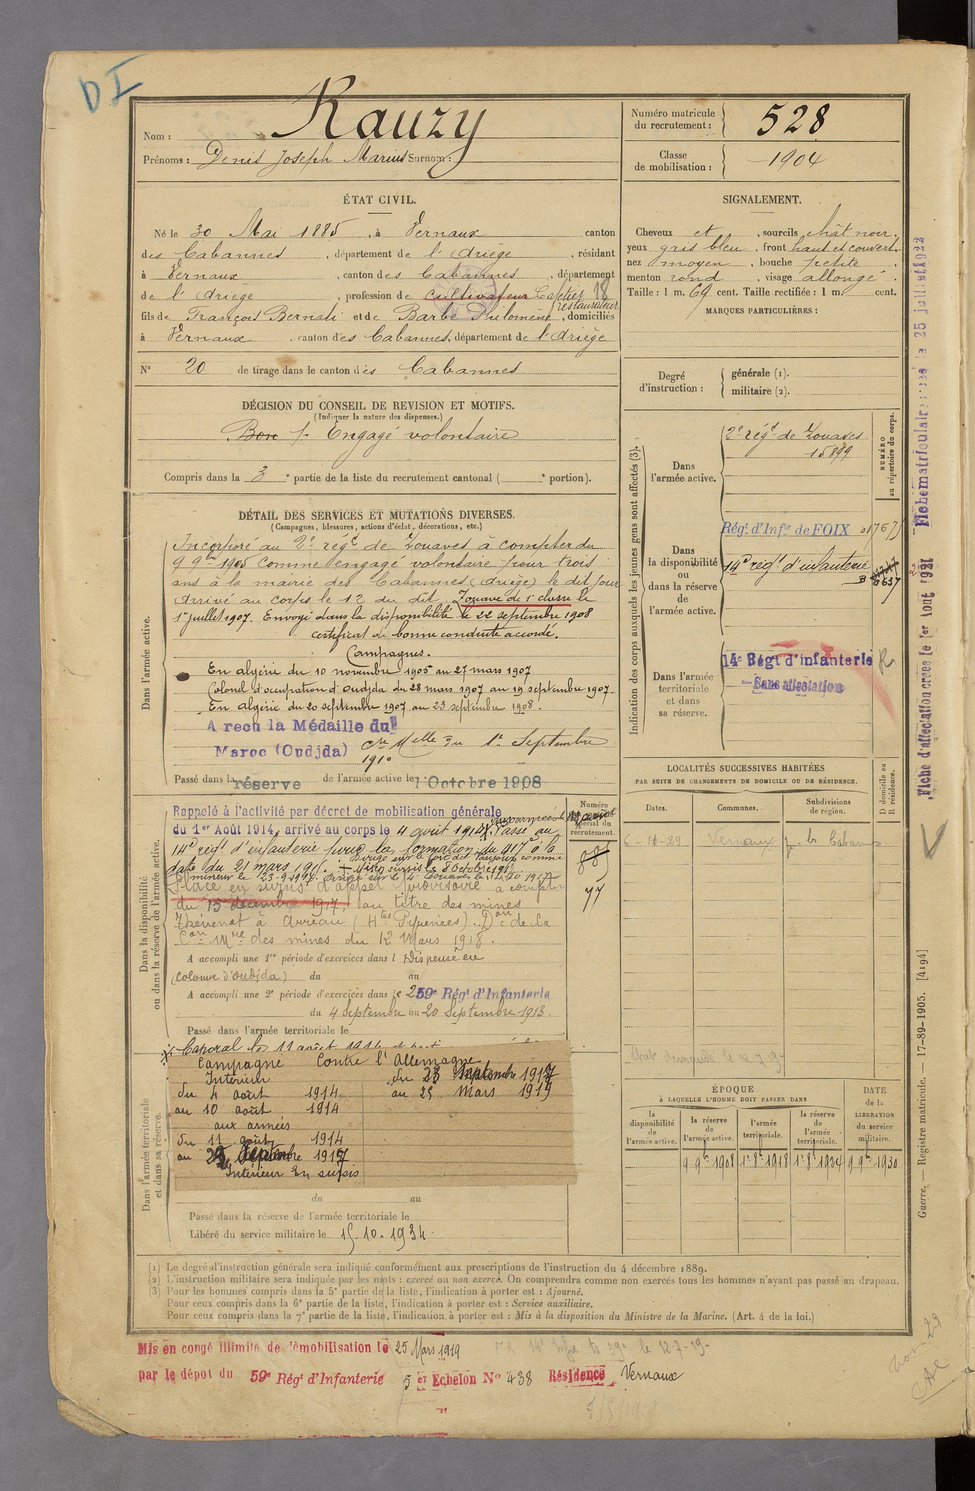 DI
Nom : Rauzy
Prénoms : Denis Joseph Marius Surnom :
Numéro matricule du recrutement : 528
Classe de mobilisation : 1904
ÉTAT CIVIL.
Né le 30 Mai 1885, à Vernaux canton
des Cabannes, département de l'Ariège, résidant
à Vernaux, canton des Cabannes, département
de l'Ariège, profession de cultivateur Cafetier 18
restaurateur
fils de François Bernard et de Barbe Philomène, domiciliés
à Vernaux, canton des Cabannes, département de l'Ariège
N° 20 de tirage dans le canton des Cabannes
SIGNALEMENT.
Cheveux et, sourcils chât noir,
yeux gris bleu, front haut et couvert,
nez moyen, bouche petite,
menton rond, visage allongé.
Taille : 1 m. 69 cent. Taille rectifiée : 1 m. cent.
MARQUES PARTICULIÈRES :
Degré d'instruction : générale (1).
militaire (2).
DÉCISION DU CONSEIL DE REVISION ET MOTIFS.
(Indiquer la nature des dispenses.)
Bon Engagé volontaire
Compris dans la 3e partie de la liste du recrutement cantonal ( e portion).
DÉTAIL DES SERVICES ET MUTATIONS DIVERSES.
(Campagnes, blessures, actions d'éclat, décorations, etc.)
Dans l'armée active.
Incorporé au 2e régt de Zouaves à compter du
9 9bre 1905 comme engagé volontaire pour trois
ans à la mairie des Cabannes (Ariège) le dit jour
Arrivé au corps le 12 du dit. Zouave de 1e classe le
1er juillet 1907. Envoyé dans la disponibilité le 22 septembre 1908
certificat de bonne conduite accordé.
Campagnes.
En Algérie du 10 novembre 1905 au 27 mars 1907
Colonel d'occupation d'Oudjda du 28 mars 1907 au 19 septembre 1907.
En Algérie du 20 septembre 1907 au 23 septembre 1908.
A reçu la Médaille du
Maroc (Oudjda) du 1er Septembre
1910
Passé dans la réserve de l'armée active le 1 Octobre 1908
Indication des corps auxquels les jeunes gens sont affectés (3).
NUMÉRO au répertoire du corps.
Dans l'armée active.
2e régt de Zouaves
15899
Dans la disponibilité ou dans la réserve de l'armée active.
Régt d'Infie de FOIX
14e régt d'infanterie
Dans l'armée territoriale et dans sa réserve.
14e Régt d'infanterie R
Sans affectation
LOCALITÉS SUCCESSIVES HABITÉES
PAR SUITE DE CHANGEMENTS DE DOMICILE OU DE RÉSIDENCE.
Dates. Communes. Subdivisions de région. D domicile ou R résidence.
6-4-29 Vernaux
Dans la disponibilité ou dans la réserve de l'armée active.
Numéro spécial du recrutement.
Rappelé à l'activité par décret de mobilisation générale
du 1er Août 1914, arrivé au corps le 4 août 1914. Passé au
14e régt d'infanterie pour la formation du 417e à la
date du 21 mars 1915.
Placé en sursis d'appel provisoire à compter
du 15 décembre 1917, au titre des mines
Thévenet à Arreau (Htes Pyrénées). Don de la
Con Mre des mines du 12 Mars 1918.
77
A accompli une 1re période d'exercices dans l Dispensé en
(colonne d'Oudjda) du au
A accompli une 2e période d'exercices dans le 259e Régt d'Infanterie
du 4 Septembre au 20 Septembre 1913.
Passé dans l'armée territoriale le
Caporal le 11 août 1914
Dans l'armée territoriale et dans sa réserve.
Campagne Contre l'Allemagne
Intérieur du 23 Septembre 1917
du 4 août 1914 au 25 Mars 1919
au 10 août 1914
aux armées
du 11 août 1914
au Septembre 1917
Intérieur En sursis
du au
Passé dans la réserve de l'armée territoriale le
Libéré du service militaire le 15-10-1934
ÉPOQUE
À LAQUELLE L'HOMME DOIT PASSER DANS
la disponibilité de l'armée active. la réserve de l'armée active. l'armée territoriale. la réserve de l'armée territoriale.
DATE de la LIBÉRATION du service militaire.
9 9bre 1908 1er 8bre 1918 1er 8bre 1924 9 9bre 1930
(1) Le degré d'instruction générale sera indiqué conformément aux prescriptions de l'instruction du 4 décembre 1889.
(2) L'instruction militaire sera indiquée par les mots : exercé ou non exercé. On comprendra comme non exercés tous les hommes n'ayant pas passé au drapeau.
(3) Pour les hommes compris dans la 5e partie de la liste, l'indication à porter est : Ajourné.
Pour ceux compris dans la 6e partie de la liste, l'indication à porter est : Service auxiliaire.
Pour ceux compris dans la 7e partie de la liste, l'indication à porter est : Mis à la disposition du Ministre de la Marine. (Art. 4 de la loi.)
Mis en congé illimité de démobilisation le 25 Mars 1919
par le dépôt du 59e Régt d'Infanterie 5 er Echelon N° 438 Résidence Vernaux
Fiche matriculaire le 25 juillet 1922
Fiche d'affectation créée le 1er Août 1921
Guerre. — Registre matricule. — 17-89-1905. [4194]